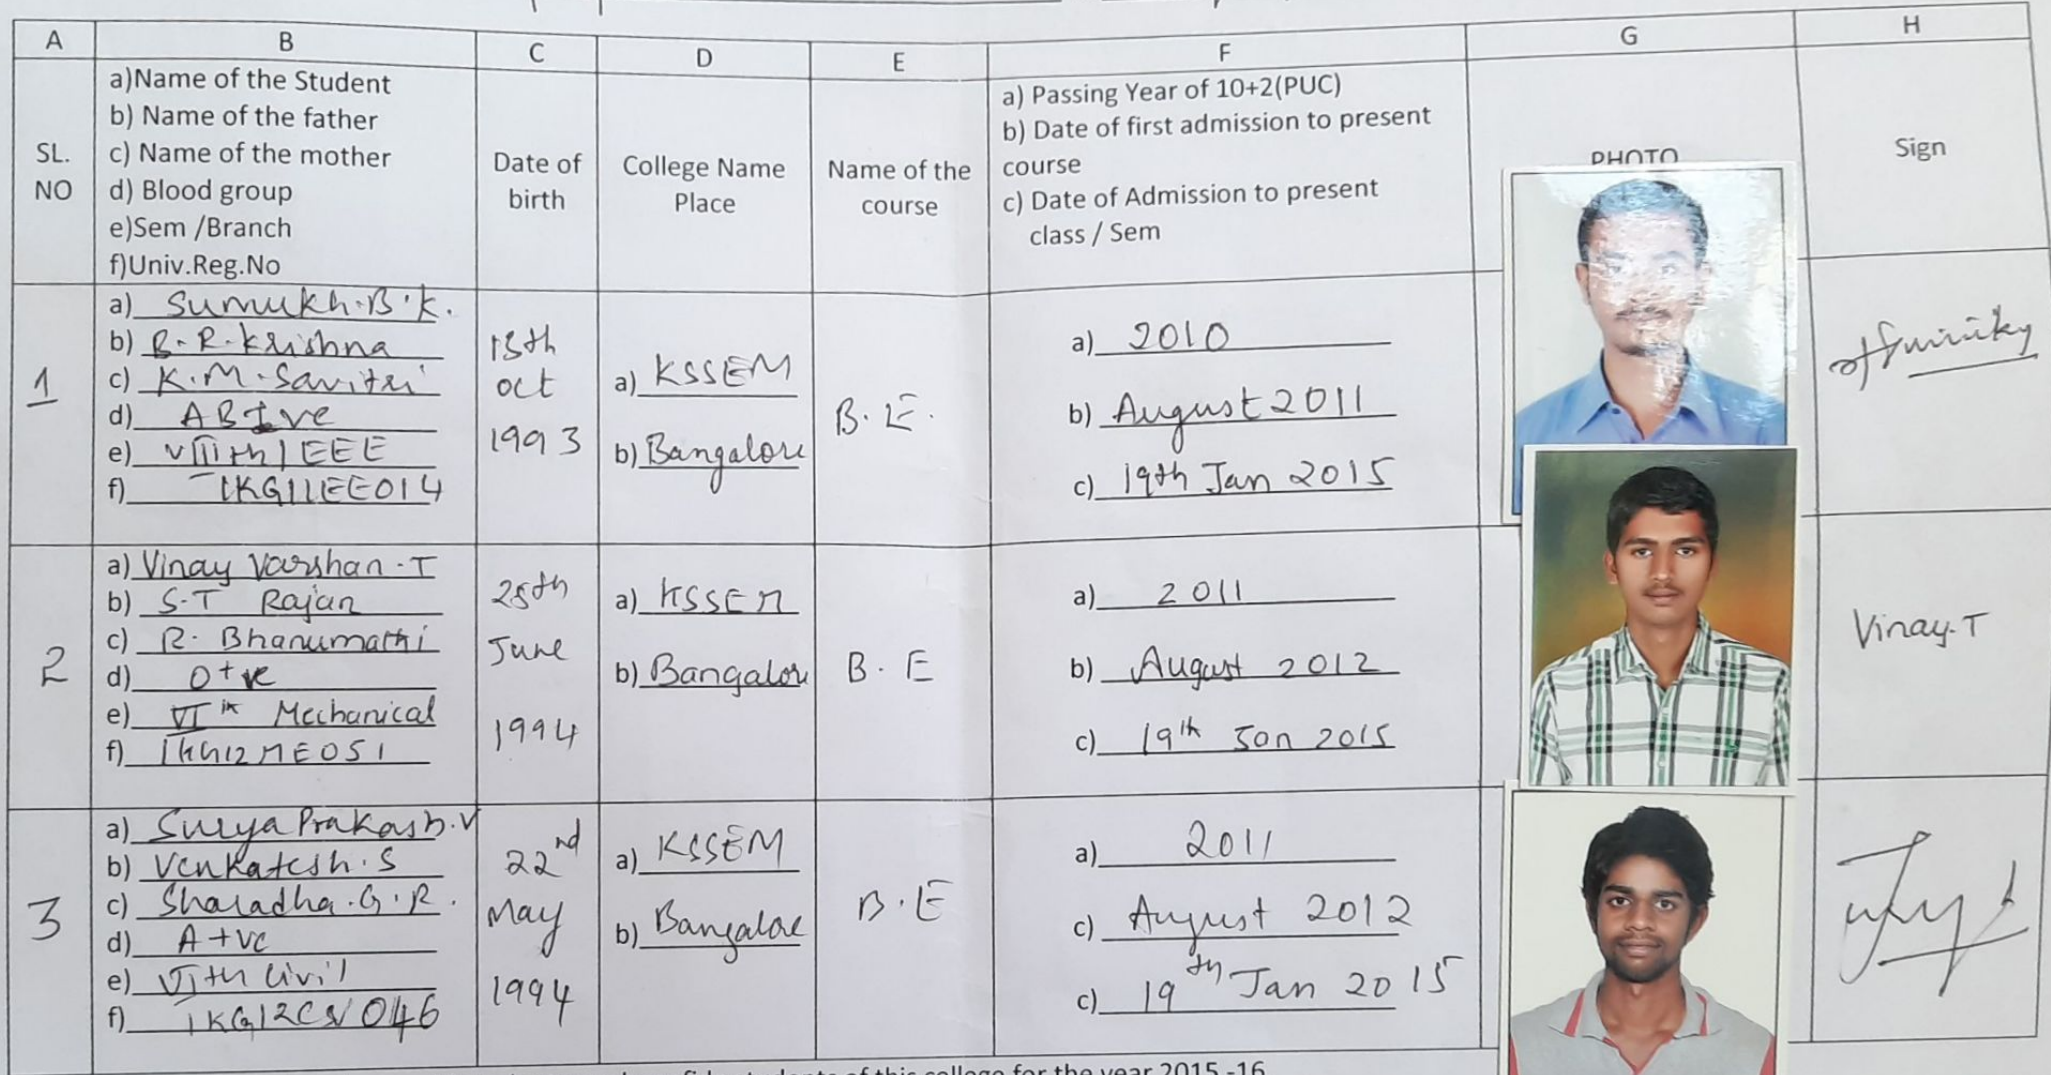 A B C D E F G H
SL. NO
a)Name of the Student
b) Name of the father
c) Name of the mother
d) Blood group
e)Sem /Branch
f)Univ.Reg.No
Date of
birth
College Name
Place
Name of the
course
a) Passing Year of 10+2(PUC)
b) Date of first admission to present
course
c) Date of Admission to present
class / Sem
PHOTO
Sign
1
a) Sumukh.B.K.
b) B.R.Krishna
c) K.M.Savitri
d) AB+ve
e) VIIIth | EEE
f) 1KG11EE014
15th
oct
1993
a) KSSEM
b) Bangalore
B.E.
a) 2010
b) August 2011
c) 19th Jan 2015
2
a) Vinay Varshan.T
b) S.T Rajan
c) R. Bhanumathi
d) O+ve
e) VIth Mechanical
f) 1KG12ME051
25th
June
1994
a) KSSEM
b) Bangalore
B.E
a) 2011
b) August 2012
c) 19th Jan 2015
Vinay.T
3
a) Surya Prakash.V
b) Venkatesh.S
c) Sharadha.G.R.
d) A+ve
e) VIth Civil
f) 1KG12CV046
22nd
May
1994
a) KSSEM
b) Bangalore
B.E
a) 2011
c) August 2012
c) 19th Jan 2015
students of this college for the year 2015 -16